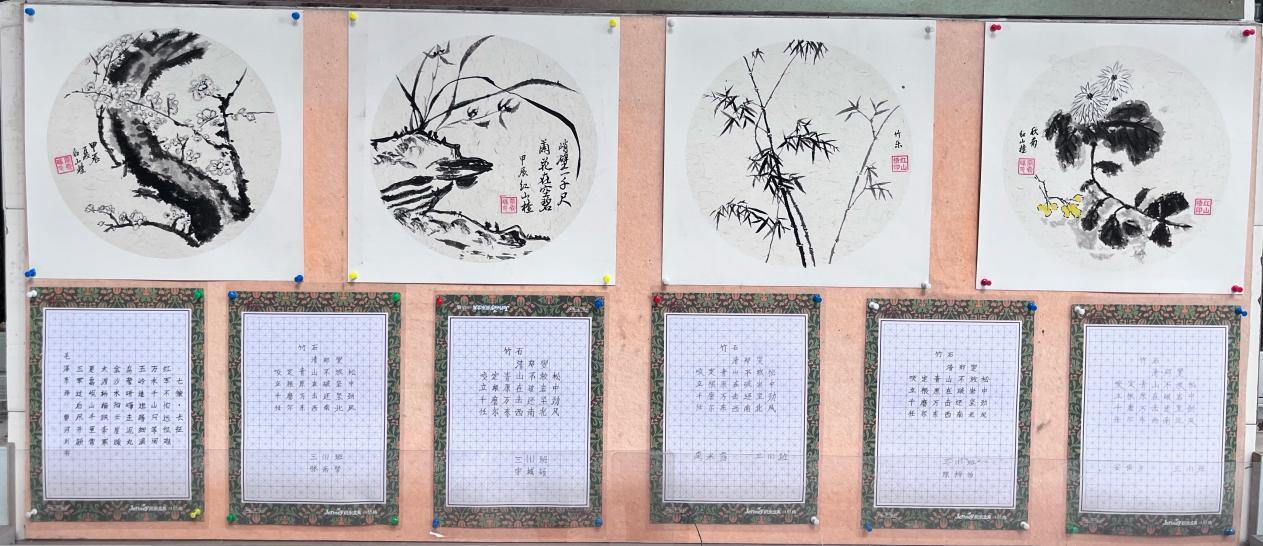 甲辰
夏
峭壁一千尺
蘭花在空碧
甲辰红山
秋菊
红山
七律·长征
红军不怕远征难
万水千山只等闲
五岭逶迤腾细浪
乌蒙磅礴走泥丸
金沙水拍云崖暖
大渡桥横铁索寒
更喜岷山千里雪
三军过后尽开颜
毛泽东
竹石
清 郑燮
咬定青山不放松
立根原在破岩中
千磨万击还坚劲
任尔东西南北风
三(1)班
竹石
清 郑燮
咬定青山不放松
立根原在破岩中
千磨万击还坚劲
任尔东西南北风
三(1)班
竹石
清 郑燮
咬定青山不放松
立根原在破岩中
千磨万击还坚劲
任尔东西南北风
三(1)班
竹石
清 郑燮
咬定青山不放松
立根原在破岩中
千磨万击还坚劲
任尔东西南北风
三(1)班
竹石
清 郑燮
咬定青山不放松
立根原在破岩中
千磨万击还坚劲
任尔东西南北风
三(1)班